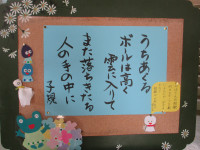 うちあぐる
ボールは高く
雲に入りて
また落ち来る
人の手の中に
子規